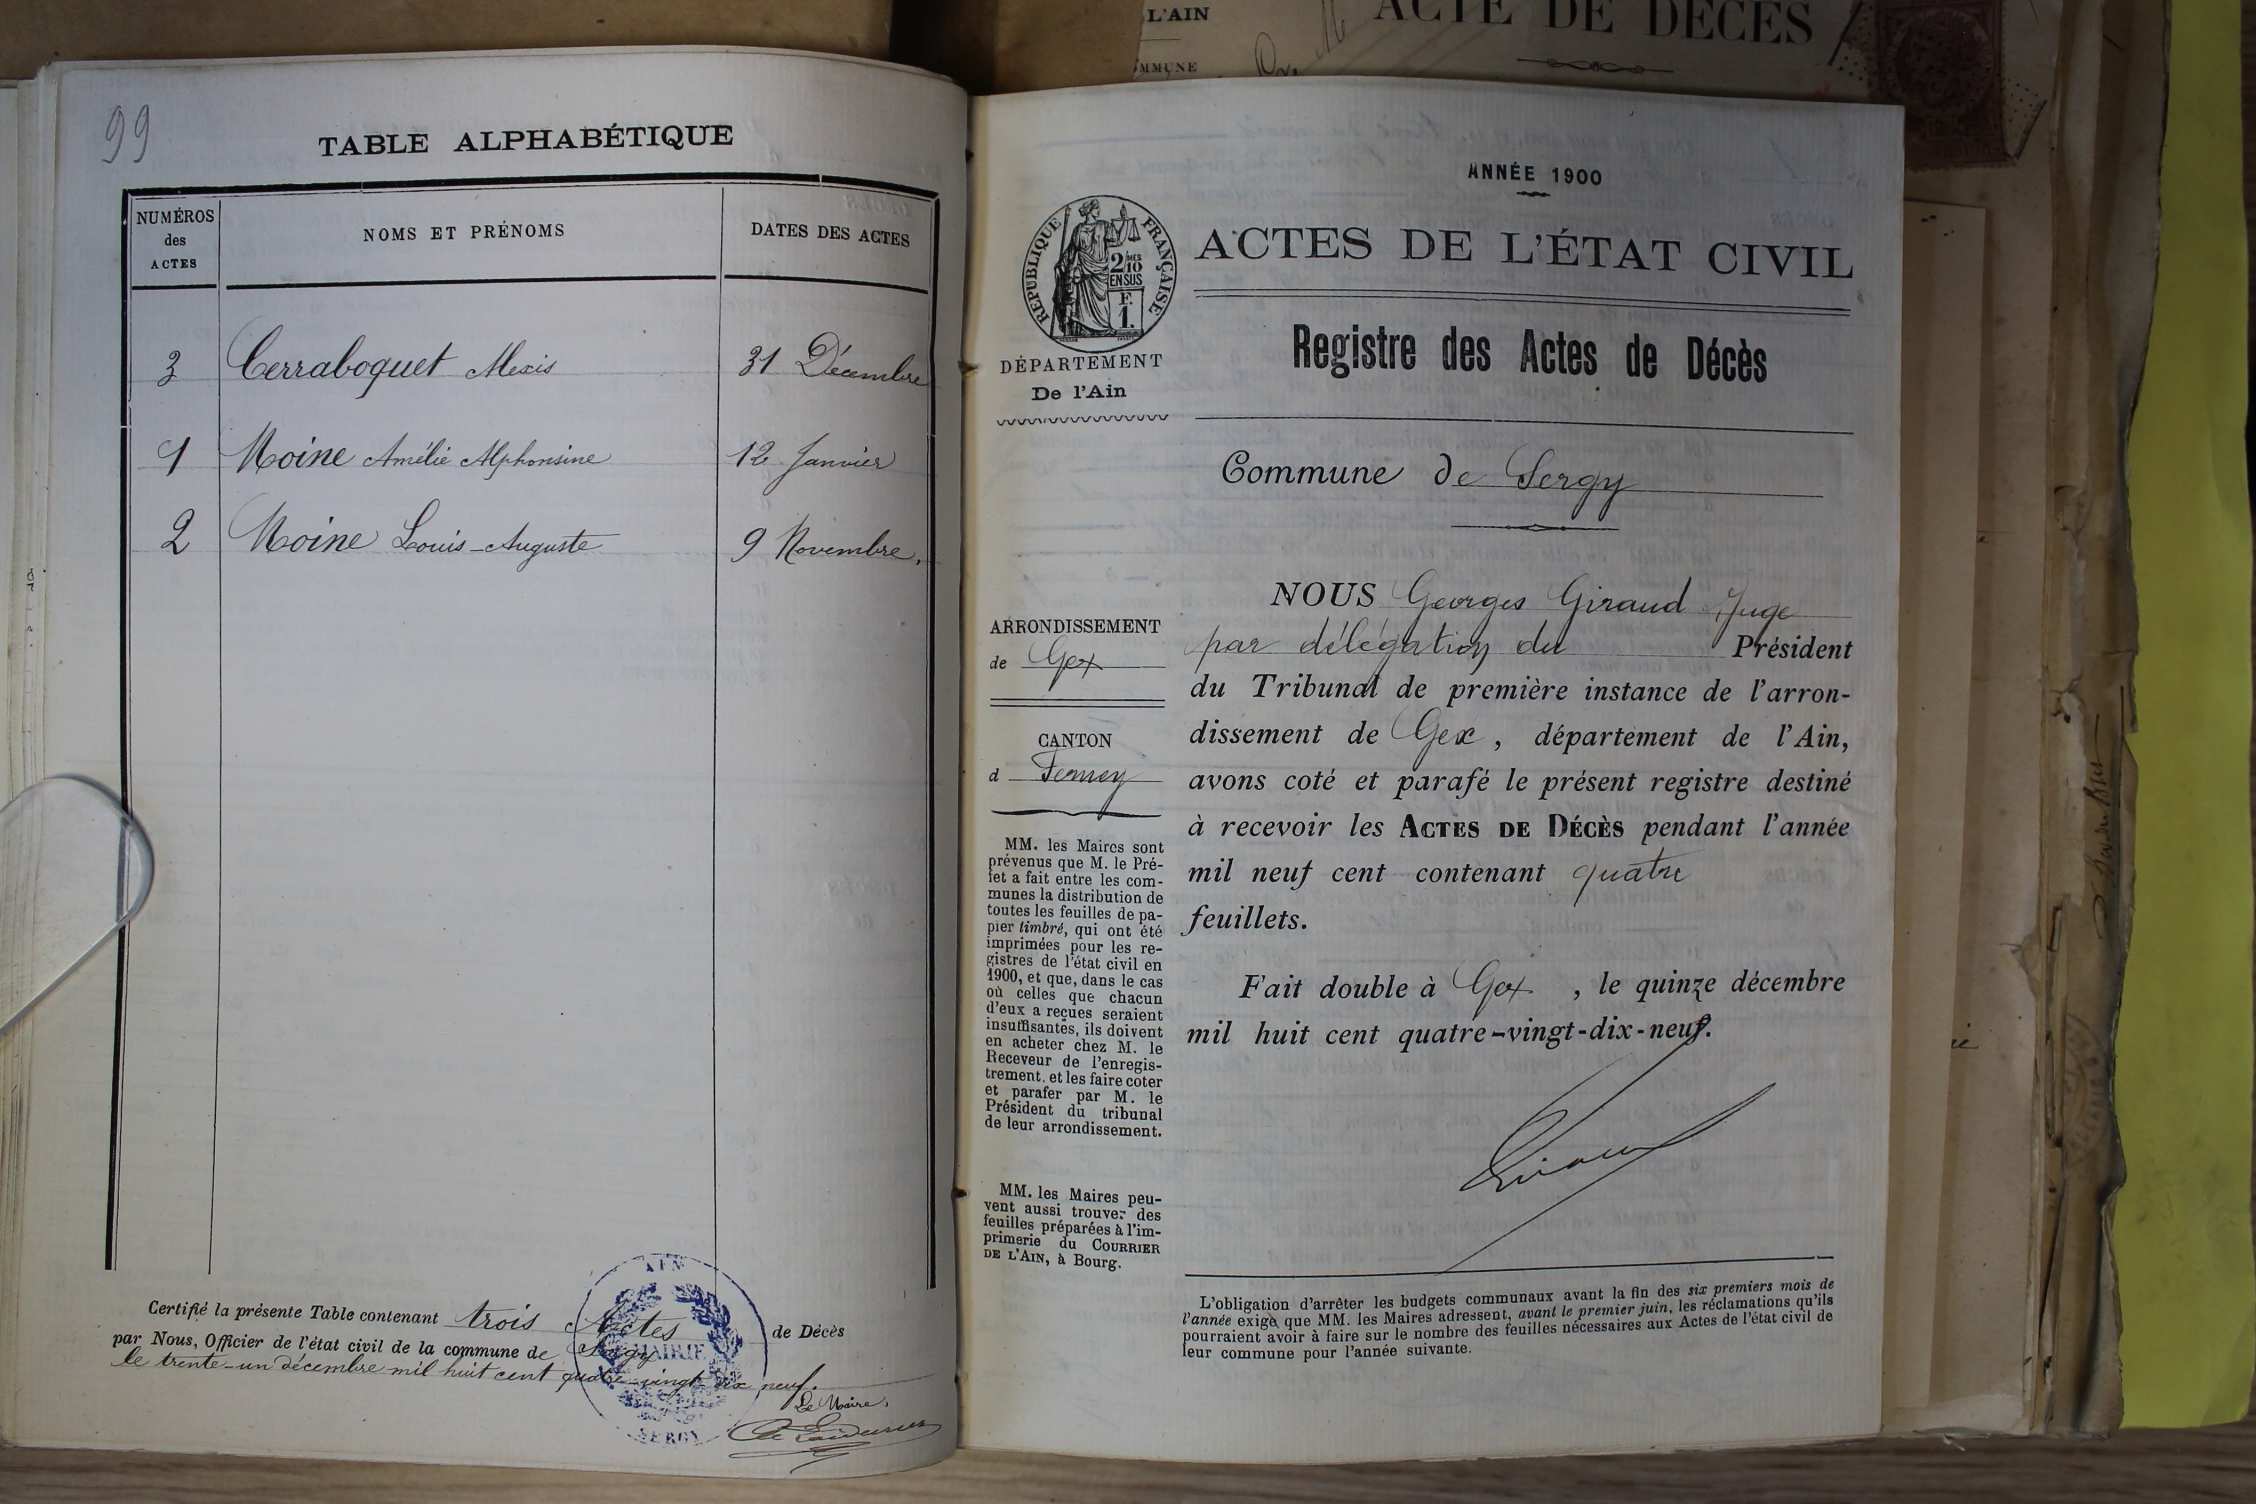 L'AIN
MMUNE
ACTE DE DÉCÈS
99
TABLE ALPHABÉTIQUE
NUMÉROS
des
ACTES
NOMS ET PRÉNOMS
DATES DES ACTES
3 Cerraboquet Alexis 31 Décembre
1 Moine Amélie Alphonsine 12 Janvier
2 Moine Louis-Auguste 9 Novembre.
Certifié la présente Table contenant trois Actes de Décès
par Nous, Officier de l'état civil de la commune de Sergy
le trente-un décembre mil huit cent quatre-vingt dix neuf.
Le Maire,
AIN
MAIRIE
SERGY
ANNÉE 1900
ACTES DE L'ÉTAT CIVIL
RÉPUBLIQUE FRANÇAISE
2 DES 10
EN SUS
F.
1.
DÉPARTEMENT
De l'Ain
Registre des Actes de Décès
Commune de Sergy
ARRONDISSEMENT
de Gex
CANTON
d Ferney
MM. les Maires sont
prévenus que M. le Pré-
fet a fait entre les com-
munes la distribution de
toutes les feuilles de pa-
pier timbré, qui ont été
imprimées pour les re-
gistres de l'état civil en
1900, et que, dans le cas
où celles que chacun
d'eux a reçues seraient
insuffisantes, ils doivent
en acheter chez M. le
Receveur de l'enregis-
trement. et les faire coter
et parafer par M. le
Président du tribunal
de leur arrondissement.
MM. les Maires peu-
vent aussi trouver des
feuilles préparées à l'im-
primerie du COURRIER
DE L'AIN, à Bourg.
NOUS Georges Giraud Juge
par délégation du Président
du Tribunal de première instance de l'arron-
dissement de Gex, département de l'Ain,
avons coté et parafé le présent registre destiné
à recevoir les ACTES DE DÉCÈS pendant l'année
mil neuf cent contenant quatre
feuillets.
Fait double à Gex, le quinze décembre
mil huit cent quatre-vingt-dix-neuf.
Giraud
L'obligation d'arrêter les budgets communaux avant la fin des six premiers mois de
l'année exige que MM. les Maires adressent, avant le premier juin, les réclamations qu'ils
pourraient avoir à faire sur le nombre des feuilles nécessaires aux Actes de l'état civil de
leur commune pour l'année suivante.